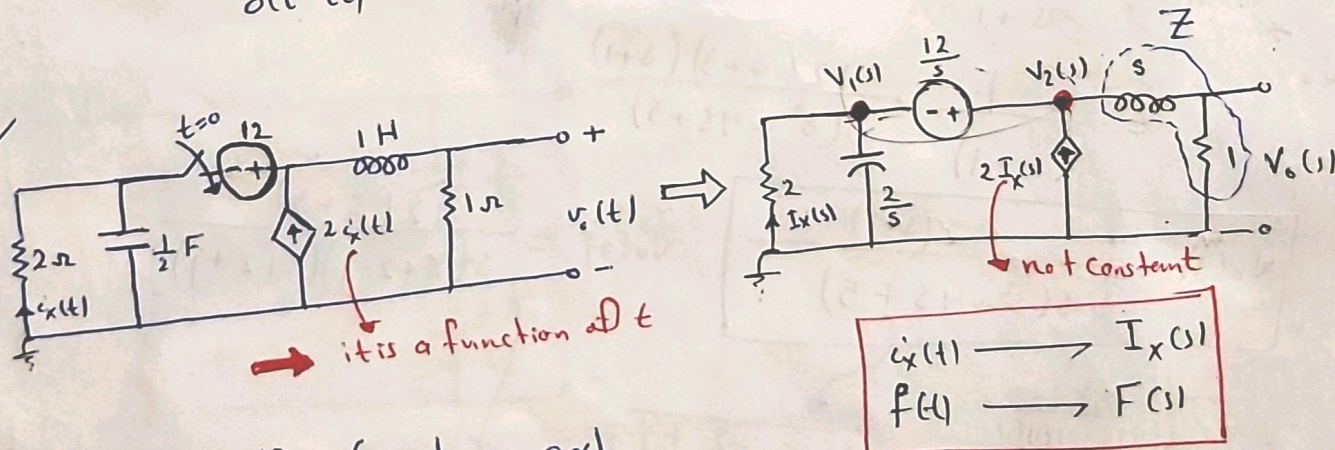 t=0
12
1 H
+
2 Ω
1/2 F
2 ix(t)
1 Ω
v₀(t)
ix(t)
-
it is a function of t
Z
V₁(s)
12/s
V₂(s)
s
- +
2
Ix(s)
2/s
2Ix(s)
1
V₀(s)
not constant
ix(t) → Ix(s)
f(t) → F(s)